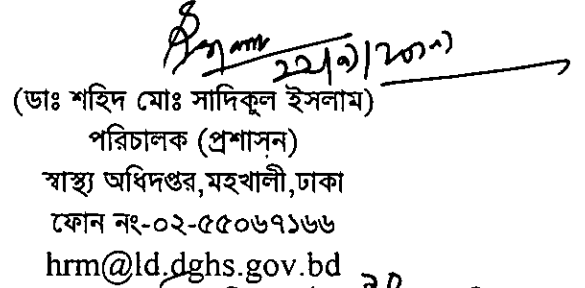 (ডাঃ শহিদ মোঃ সাদিকুল ইসলাম)
পরিচালক (প্রশাসন)
স্বাস্থ্য অধিদপ্তর,মহখালী,ঢাকা
ফোন নং-০২-৫৫০৬৭১৬৬
hrm@ld.dghs.gov.bd